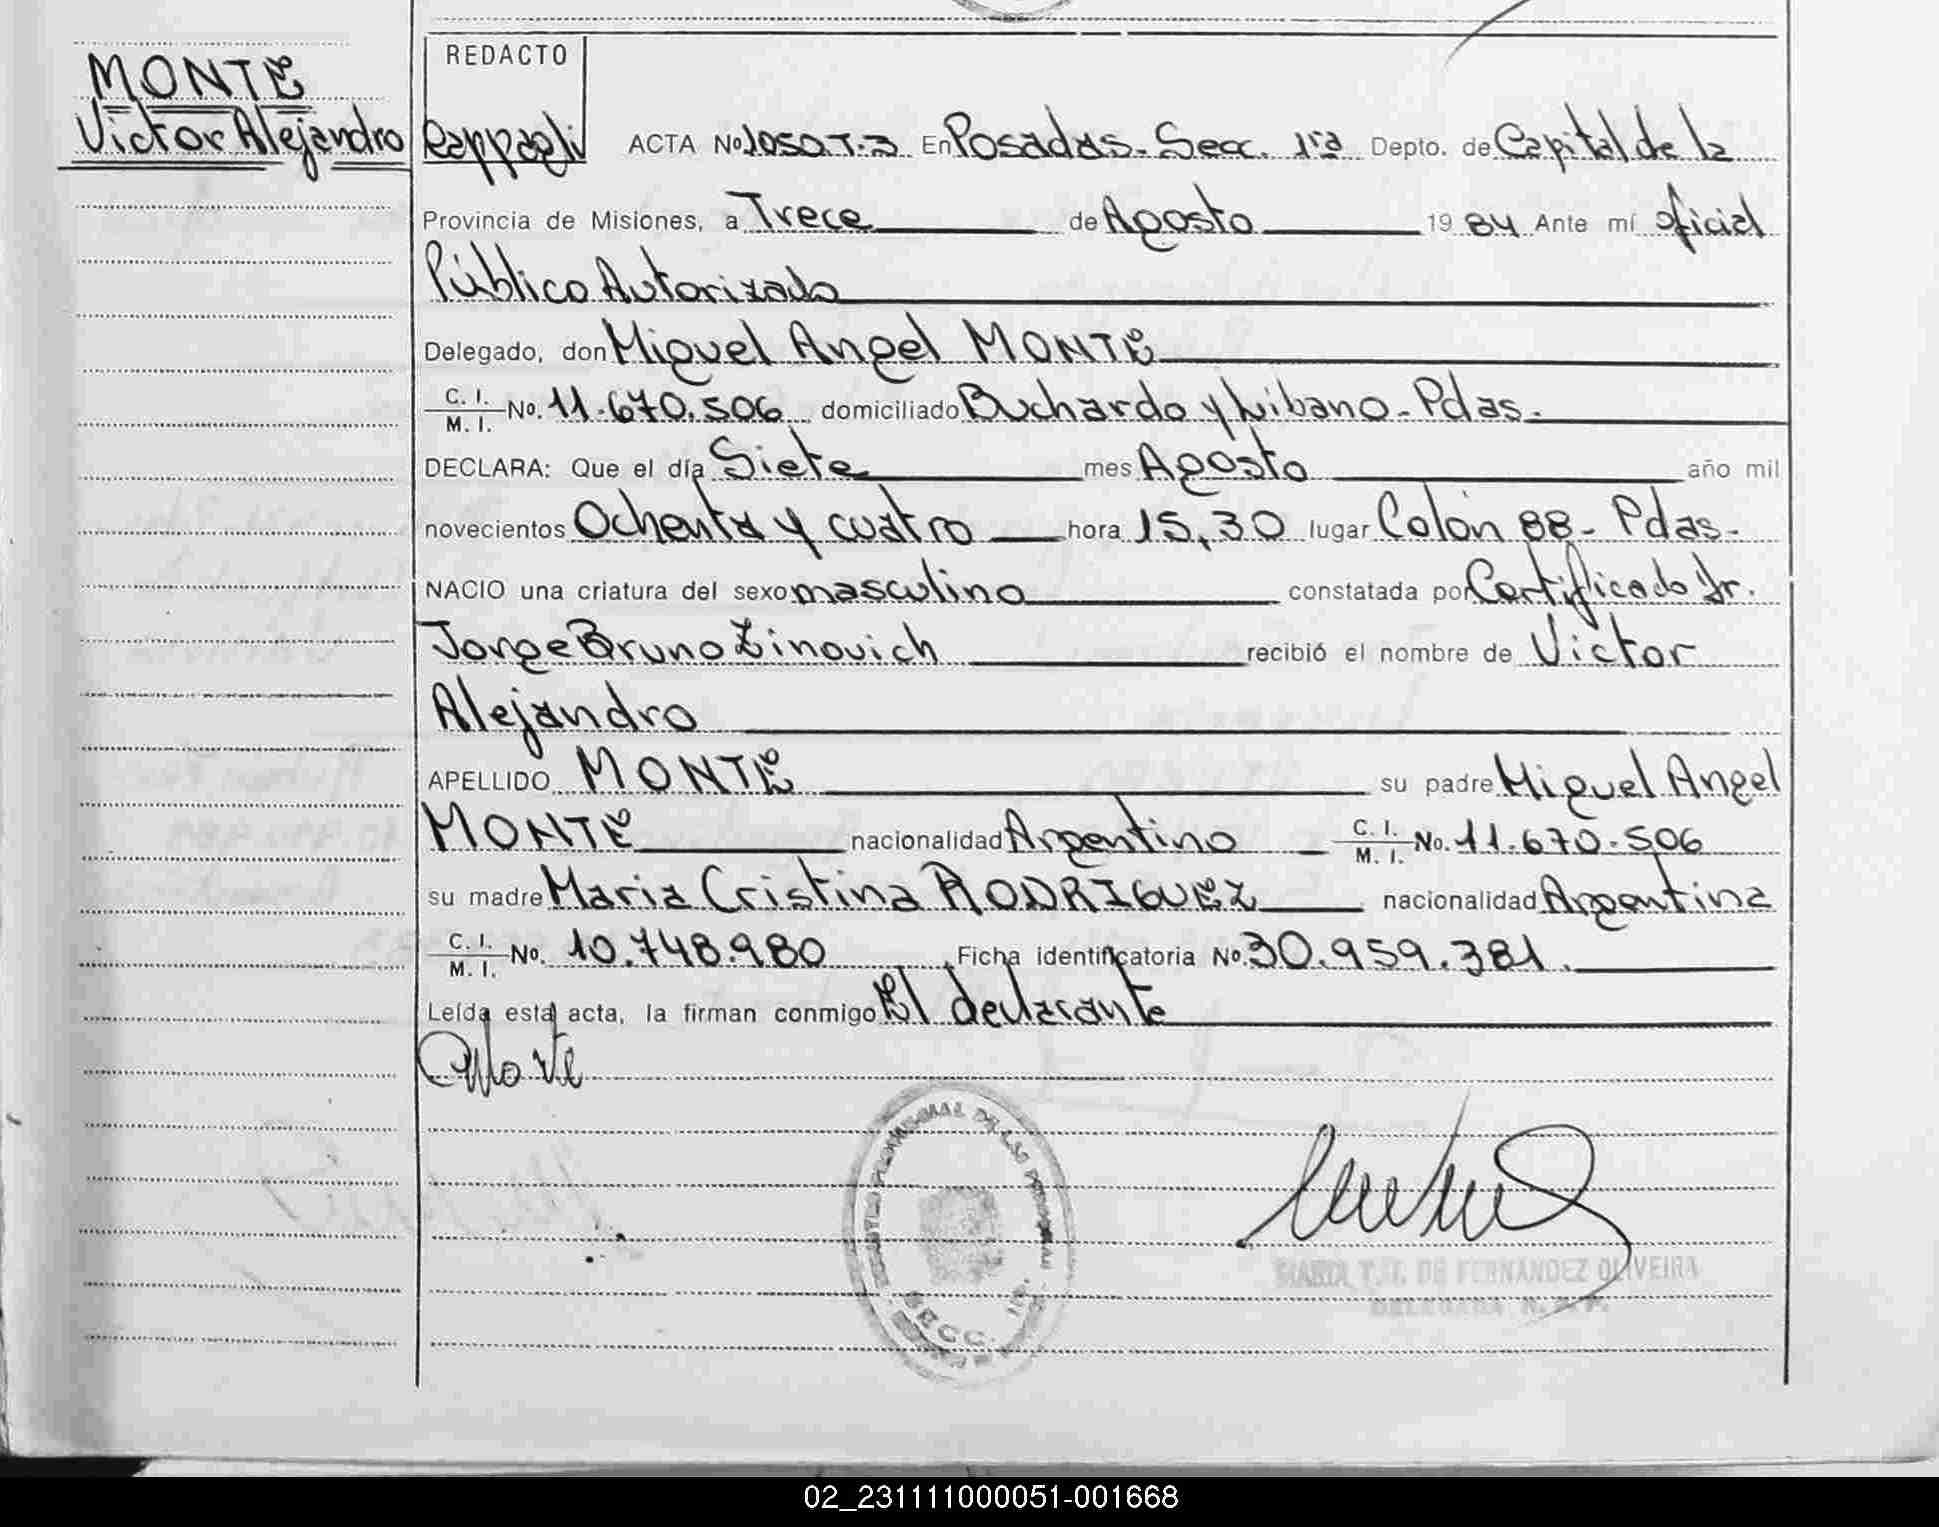 MONTE
Victor Alejandro
REDACTO
Rappagli ACTA No. 1050.T.3 En Posadas-Secc. 1ra Depto. de Capital de la
Provincia de Misiones, a Trece de Agosto 1984 Ante mí oficial
Público Autorizado
Delegado, don Miguel Angel MONTE
C. I. M. I. No. 11.670.506 domiciliado Buchardo y Líbano-Pdas.
DECLARA: Que el día Siete mes Agosto año mil
novecientos Ochenta y cuatro hora 15,30 lugar Colón 88-Pdas-
NACIO una criatura del sexo masculino constatada por Certificado Dr.
Jorge Bruno Zinovich recibió el nombre de Victor
Alejandro
APELLIDO MONTE su padre Miguel Angel
MONTE nacionalidad Argentino C. I. M. I. No. 11.670.506
su madre Maria Cristina RODRIGUEZ nacionalidad Argentina
C. I. M. I. No. 10.748.980 Ficha identificatoria No. 30.959.381.
Leída esta acta, la firman conmigo El declarante
MARIA T. DE FERNANDEZ OLIVEIRA
DELEGADA R. P. P.
SECC.
02_231111000051-001668